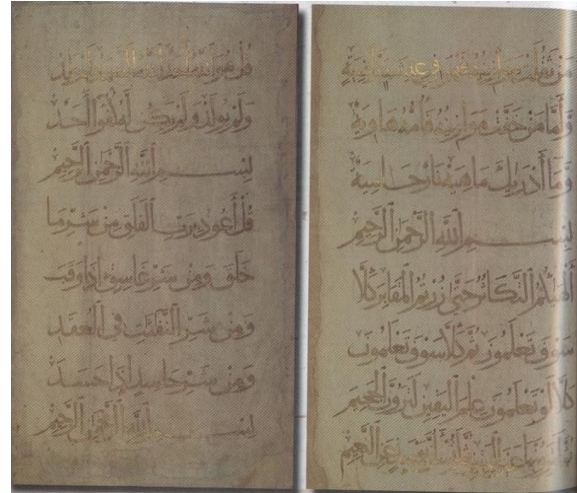 مَن ثَقُلَتْ مَوَازِينُهُ فَهُوَ فِي عِيشَةٍ رَاضِيَةٍ
وَأَمَّا مَنْ خَفَّتْ مَوَازِينُهُ فَأُمُّهُ هَاوِيَةٌ
وَمَا أَدْرَىٰكَ مَا هِيَهْ نَارٌ حَامِيَةٌ
بِسْمِ ٱللَّهِ ٱلرَّحْمَٰنِ ٱلرَّحِيمِ
أَلْهَىٰكُمُ ٱلتَّكَاثُرُ حَتَّىٰ زُرْتُمُ ٱلْمَقَابِرَ كَلَّا
سَوْفَ تَعْلَمُونَ ثُمَّ كَلَّا سَوْفَ تَعْلَمُونَ
كَلَّا لَوْ تَعْلَمُونَ عِلْمَ ٱلْيَقِينِ لَتَرَوُنَّ ٱلْجَحِيمَ
ثُمَّ لَتَرَوُنَّهَا عَيْنَ ٱلْيَقِينِ ثُمَّ لَتُسْـَٔلُنَّ يَوْمَئِذٍ عَنِ ٱلنَّعِيمِ
قُلْ هُوَ ٱللَّهُ أَحَدٌ ٱللَّهُ ٱلصَّمَدُ لَمْ يَلِدْ
وَلَمْ يُولَدْ وَلَمْ يَكُن لَّهُ كُفُوًا أَحَدٌ
بِسْمِ ٱللَّهِ ٱلرَّحْمَٰنِ ٱلرَّحِيمِ
قُلْ أَعُوذُ بِرَبِّ ٱلْفَلَقِ مِن شَرِّ مَا
خَلَقَ وَمِن شَرِّ غَاسِقٍ إِذَا وَقَبَ
وَمِن شَرِّ ٱلنَّفَّٰثَٰتِ فِي ٱلْعُقَدِ
وَمِن شَرِّ حَاسِدٍ إِذَا حَسَدَ
بِسْمِ ٱللَّهِ ٱلرَّحْمَٰنِ ٱلرَّحِيمِ